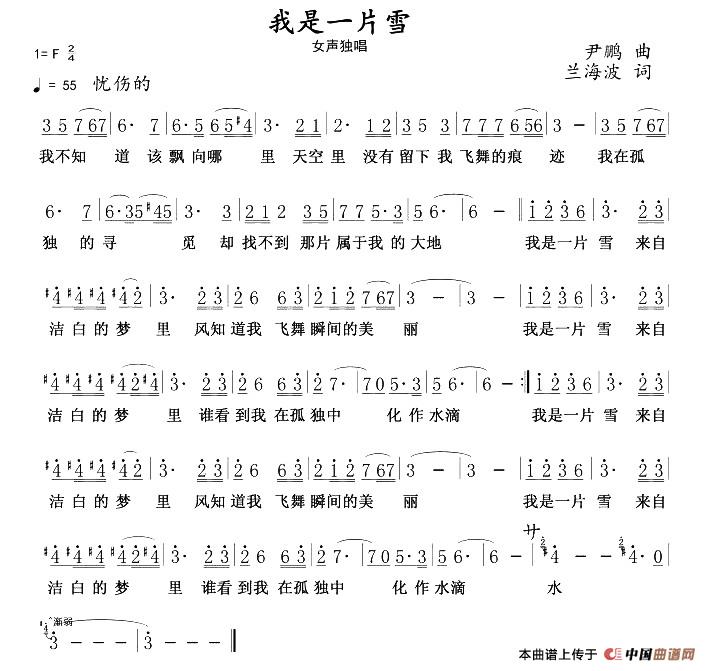 我是一片雪
女声独唱
1= F 2/4
尹鹏 曲
♩= 55 忧伤的
兰海波 词
3 5 7 67 | 6· 7 | 6·5 65#4 | 3· 2 1 | 2· 1 2 | 3 5 3 | 7 7 7 6 56 | 3 － | 3 5 7 67 |
我不知 道 该飘向哪 里 天空里 没有留下我飞舞的痕 迹 我在孤
6· 7 | 6·35#45 | 3· 3 | 2 1 2 3 5 | 7 7 5 3·2 | 5 6· | 6 － ‖ 1 2 3 6 | 3· 2 3 |
独 的寻 觅 却找不到 那片属于我的大地 我是一片 雪 来自
#4 #4 #4 #42 | 3· 2 3 | 2 6 6 3 | 2 1 2 7 67 | 3 － | 3 － | 1 2 3 6 | 3· 2 3 |
洁白的梦 里 风知道我 飞舞瞬间的美 丽 我是一片 雪 来自
#4 #4 #4 #42#4 | 3· 2 3 | 2 6 6 3 | 2 7· | 7 0 5·3 | 5 6· | 6 － :‖ 1 2 3 6 | 3· 2 3 |
洁白的梦 里 谁看到我在孤独中 化作水滴 我是一片雪 来自
#4 #4 #4 #42 | 3· 2 3 | 2 6 6 3 | 2 1 2 7 67 | 3 － | 3 － | 1 2 3 6 | 3· 2 3 |
洁白的梦 里 风知道我 飞舞瞬间的美 丽 我是一片 雪 来自
サ
#4 #4 #4 #42#4 | 3· 2 3 | 2 6 6 3 | 2 7· | 7 0 5·3 | 5 6· | 6 － | #4 － | #4· 0
洁白的梦 里 谁看到我在孤独中 化作水滴 水
渐弱
3 － | 3 － ‖
本曲谱上传于 中国曲谱网